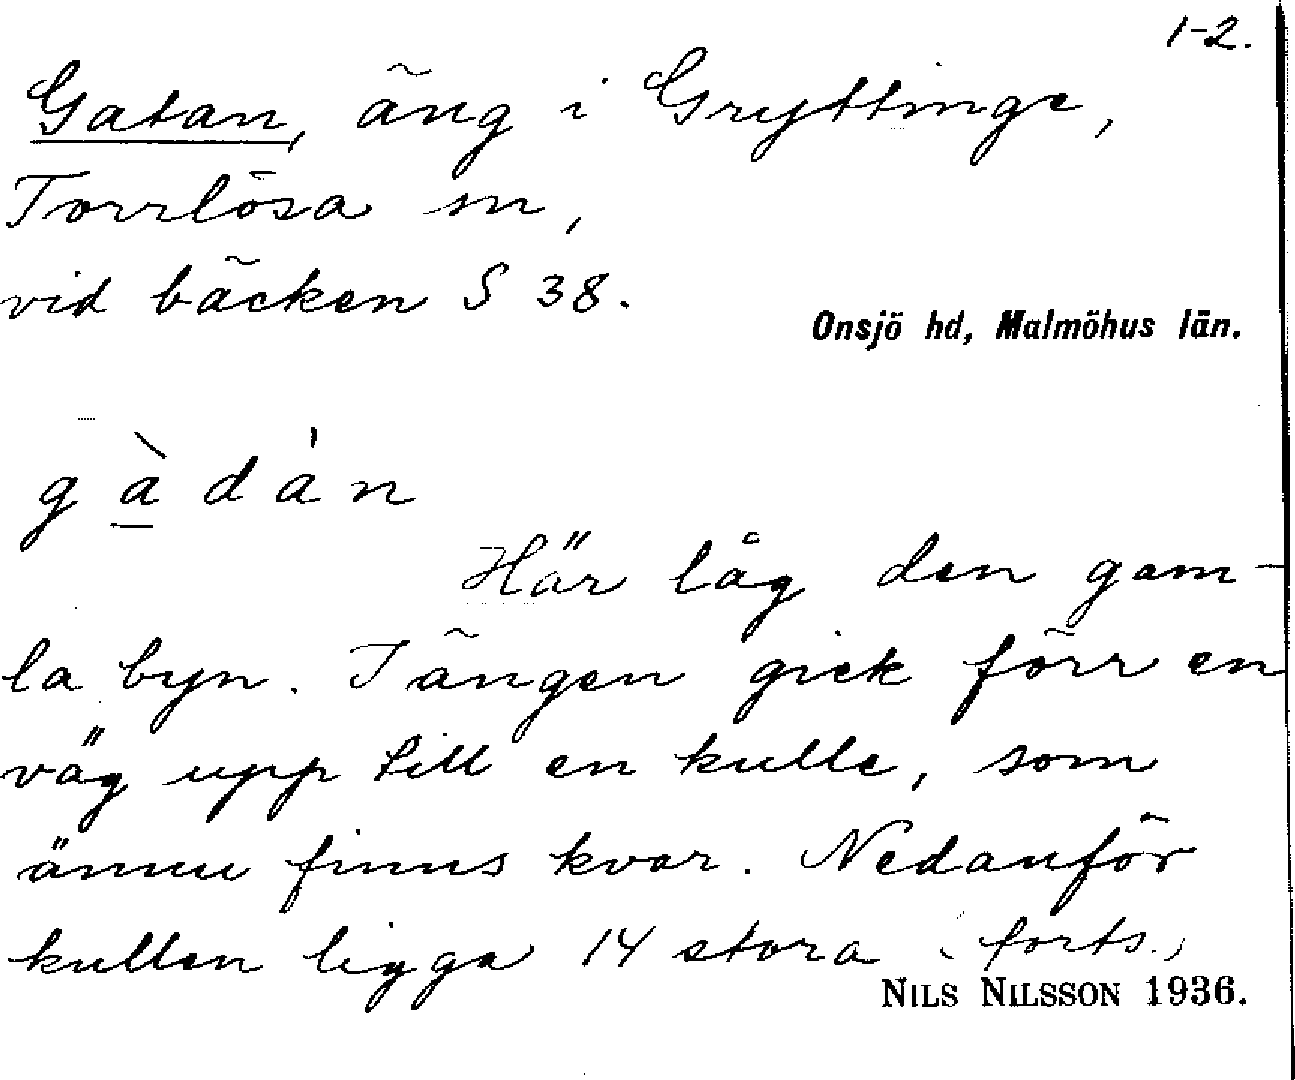 1-2.
Gatan, äng i Gryttinge,
Torrlösa sn,
vid bäcken S 38.
Onsjö hd, Malmöhus län.
gàdȧn
Här låg den gam-
la byn. I ängen gick förr en
väg upp till en kulle, som
ännu finns kvar. Nedanför
kullen ligga 14 stora (forts.)
NILS NILSSON 1936.